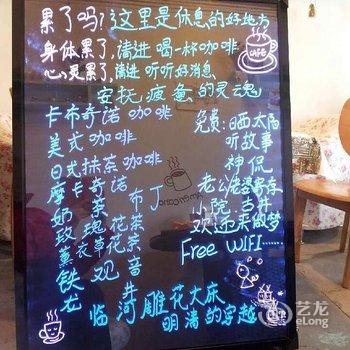 累了吗?这里是休息的好地方
身体累了,请进 喝一杯咖啡
心灵累了,请进 听听好消息
安抚疲惫的灵魂
CAFE
卡布奇诺 咖啡
美式咖啡
日式抹茶咖啡
摩卡奇诺
奶茶 布丁
玫瑰花茶
薰衣草花茶
铁观音
龙井
免费:晒太阳
听故事
神侃
老公老婆寄存
小院,古井
欢迎来做梦
Free WIFI......
临河雕花大床
明清的穿越
艺龙
eLong.com